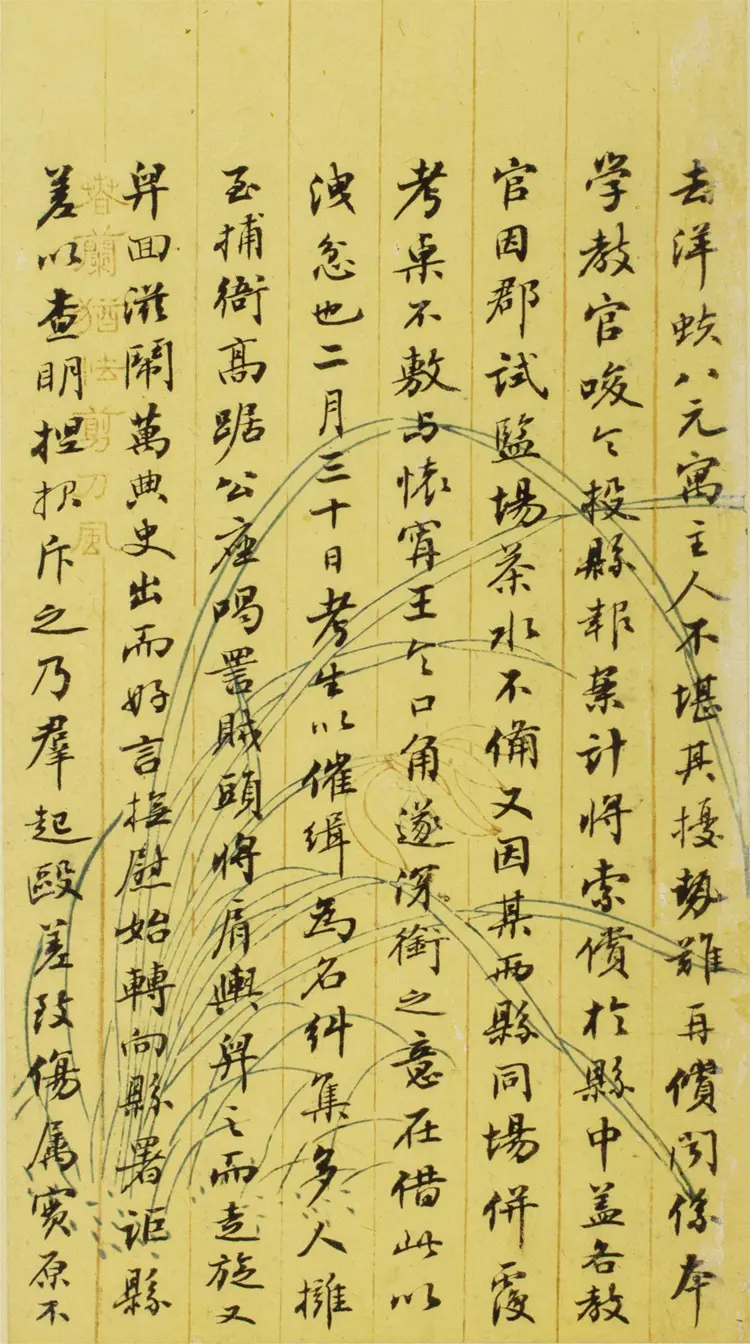 去洋蚨八元寓主人不堪其擾勢難再償闻係本
学教官唆令投縣報案計將索償於縣中盖各教
官因郡試監場茶水不備又因某両縣同場併覆
考桌不敷与懐甯王令口角遂深銜之意在借此以
洩忿也二月三十日考生以催缉為名纠集多人擁
至捕衙高踞公座喝詈賊頭將肩輿舁之而走旋又
舁回滋鬧萬典史出而好言撫慰始轉向縣署詎縣
差以查明捏报斥之乃羣起毆差致傷属實原不
春蘭猶怯剪刀風